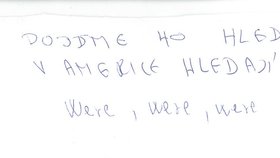 POJDME HO HLED
V AMERICE HLEDAJÍ
Were, were, were